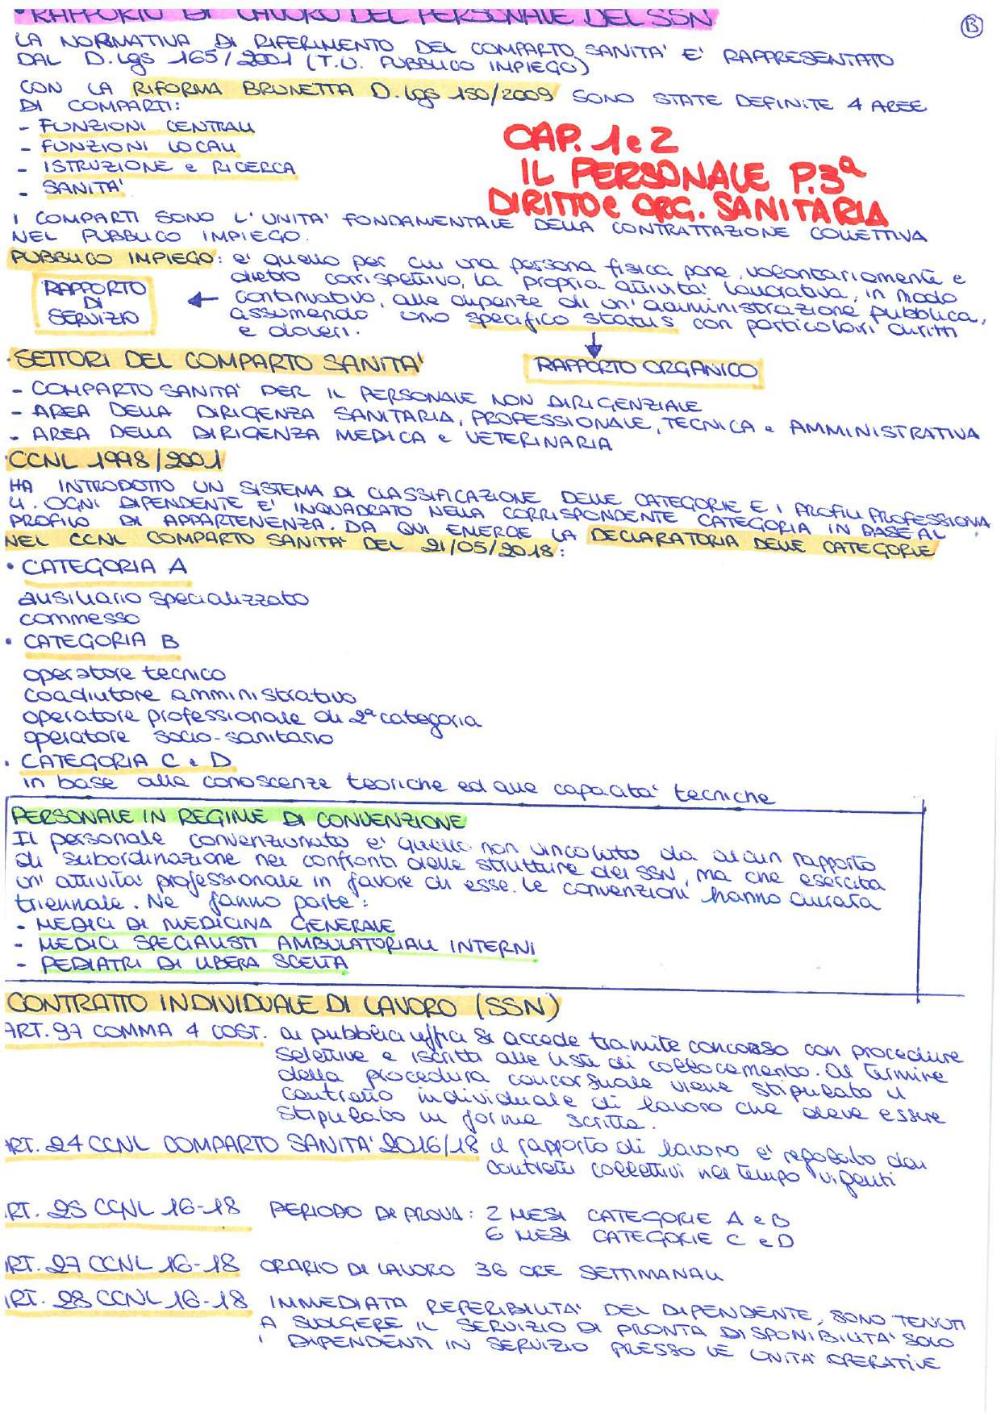 • RAPPORTO DI LAVORO DEL PERSONALE DEL SSN
B
LA NORMATIVA DI RIFERIMENTO DEL COMPARTO SANITA' E' RAPPRESENTATO
DAL D.Lgs 165/2001 (T.U. PUBBLICO IMPIEGO)
CON LA RIFORMA BRUNETTA D.Lgs 150/2009 SONO STATE DEFINITE 4 AREE
DI COMPARTI:
- FUNZIONI CENTRALI
- FUNZIONI LOCALI
- ISTRUZIONE e RICERCA
- SANITA'
CAP. 1 e 2
IL PERSONALE P.3ª
DIRITTO e ORG. SANITARIA
I COMPARTI SONO L'UNITA' FONDAMENTALE DELLA CONTRATTAZIONE COLLETTIVA
NEL PUBBLICO IMPIEGO.
PUBBLICO IMPIEGO: e' quello per cui una persona fisica pone, volontariamente e
dietro corrispettivo, la propria attivita' lavorativa, in modo
continuativo, alle dipenze di un'amministrazione pubblica,
assumendo uno specifico status con particolari diritti
e doveri.
RAPPORTO
DI
SERVIZIO
RAPPORTO ORGANICO
• SETTORI DEL COMPARTO SANITA'
- COMPARTO SANITA' PER IL PERSONALE NON DIRIGENZIALE
- AREA DELLA DIRIGENZA SANITARIA, PROFESSIONALE, TECNICA e AMMINISTRATIVA
- AREA DELLA DIRIGENZA MEDICA e VETERINARIA
CCNL 1998/2001
HA INTRODOTTO UN SISTEMA DI CLASSIFICAZIONE DELLE CATEGORIE E I PROFILI PROFESSIONA
LI. OGNI DIPENDENTE E' INQUADRATO NELLA CORRISPONDENTE CATEGORIA IN BASE AL
PROFILO DI APPARTENENZA. DA QUI EMERGE LA DECLARATORIA DELLE CATEGORIE
NEL CCNL COMPARTO SANITA' DEL 21/05/2018:
• CATEGORIA A
ausiliario specializzato
commesso
• CATEGORIA B
operatore tecnico
coadiutore amministrativo
operatore professionale di 2ª categoria
operatore socio-sanitario
• CATEGORIA C e D
in base alle conoscenze teoriche ed alle capacita' tecniche
PERSONALE IN REGIME DI CONVENZIONE
Il personale convenzionato e' quello non vincolato da alcun rapporto
di subordinazione nei confronti delle strutture del SSN, ma che esercita
un'attivita' professionale in favore di esse. Le convenzioni hanno durata
triennale. Ne fanno parte:
- MEDICI DI MEDICINA GENERALE
- MEDICI SPECIALISTI AMBULATORIALI INTERNI
- PEDIATRI DI LIBERA SCELTA
CONTRATTO INDIVIDUALE DI LAVORO (SSN)
ART. 97 COMMA 4 COST. ai pubblici uffici si accede tramite concorso con procedure
selettive e iscritti alle liste di collocamento. Al termine
della procedura concorsuale viene stipulato il
contratto individuale di lavoro che deve essere
stipulato in forma scritta.
ART. 24 CCNL COMPARTO SANITA' 2016/18 il rapporto di lavoro e' regolato dai
contratti collettivi nel tempo vigenti
RT. 25 CCNL 16-18 PERIODO DI PROVA: 2 MESI CATEGORIE A e B
6 MESI CATEGORIE C e D
RT. 27 CCNL 16-18 ORARIO DI LAVORO 36 ORE SETTIMANALI
RT. 28 CCNL 16-18 IMMEDIATA REFERIBILITA' DEL DIPENDENTE, SONO TENUTI
A SVOLGERE IL SERVIZIO DI PRONTA DISPONIBILITA' SOLO
I DIPENDENTI IN SERVIZIO PRESSO LE UNITA' OPERATIVE